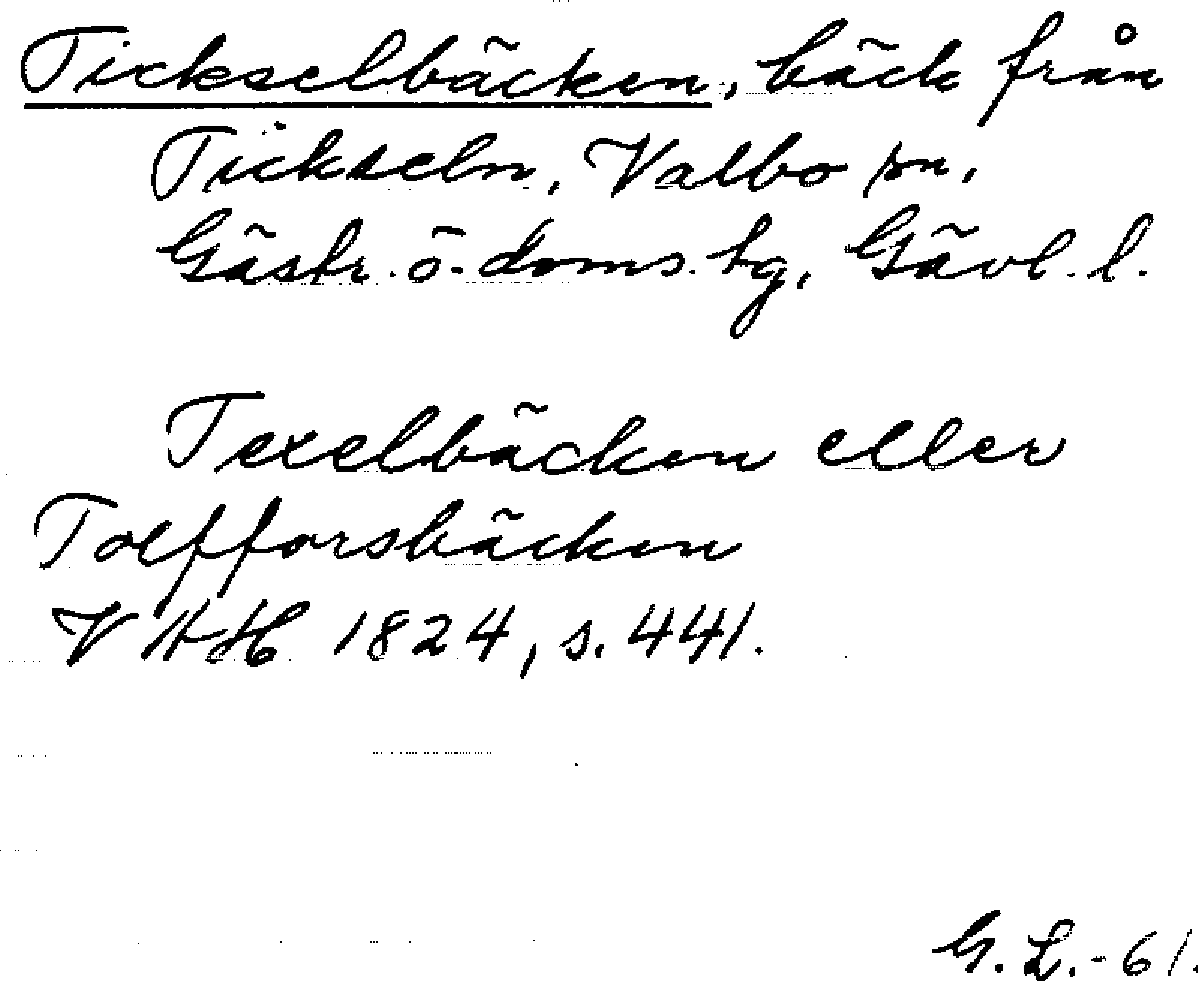 Tickselbäcken, bäck från
Tickseln, Valbo sn,
Gästr. ö. doms. tg, Gävl. l.
Texelbäcken eller
Tolfforsbäcken
VAH 1824, s. 441.
G. L. - 61.